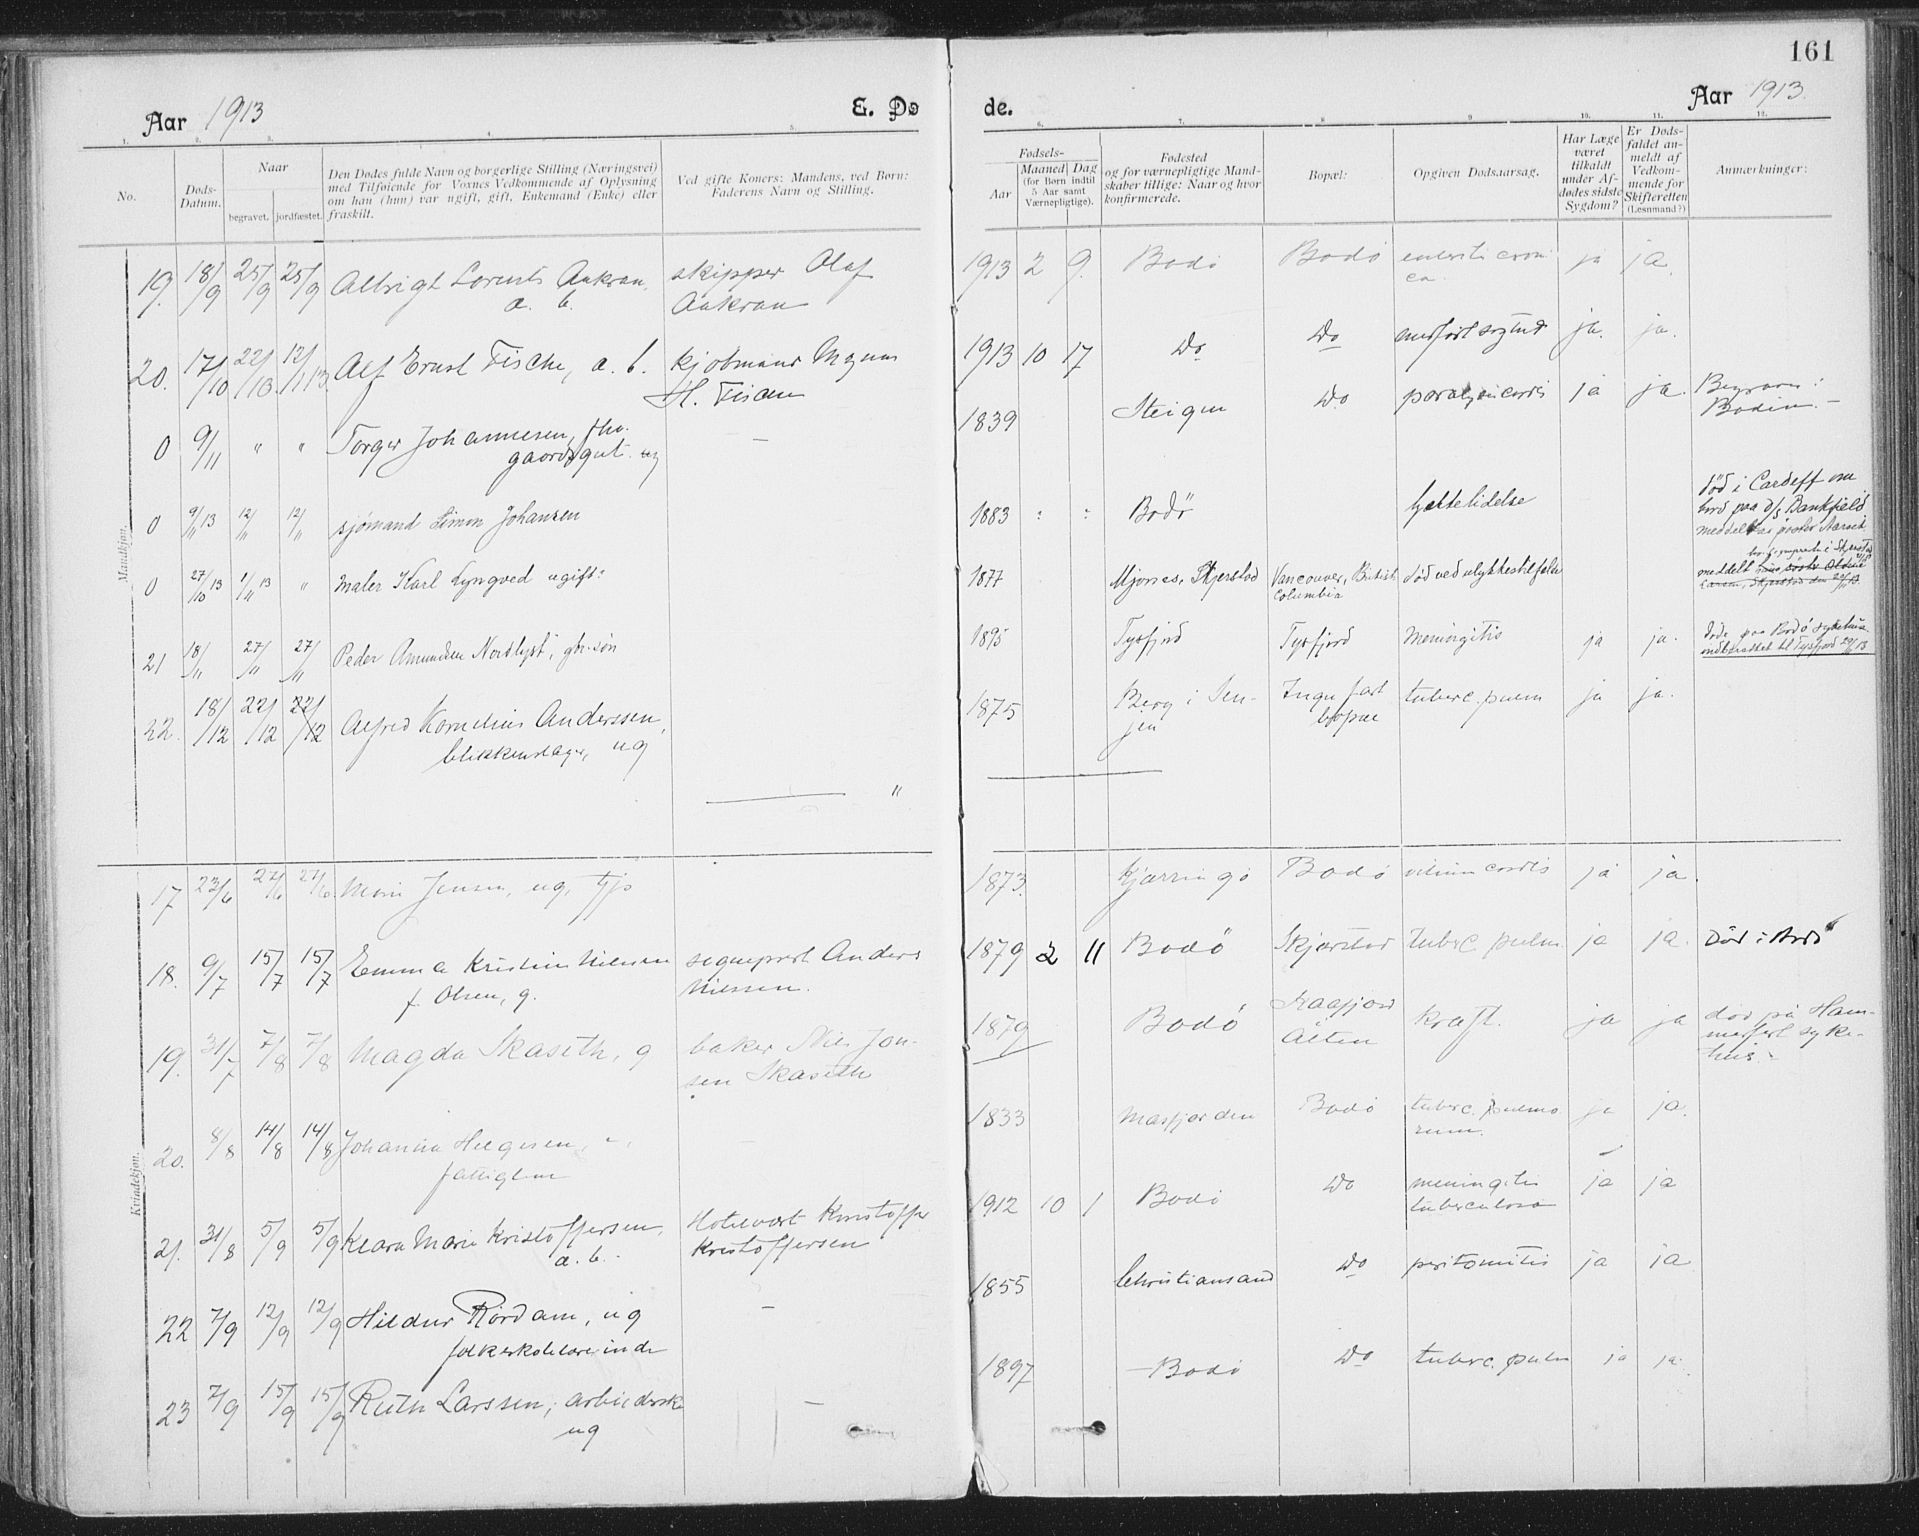 161
Aar 1913
E. Dø
de.
Aar 1913.
1. 2. 3. 4. 5. 6. 7. 8. 9. 10. 11. 12.
No.
Døds-
Datum.
Naar
begravet. jordfæstet.
Den Dødes fulde Navn og borgerlige Stilling (Næringsvei)
med Tilføiende for Voxnes Vedkommende af Oplysning
om han (hun) var ugift, gift, Enkemand (Enke) eller
fraskilt.
Ved gifte Koners: Mandens, ved Børn:
Faderens Navn og Stilling.
Fødsels-
Aar
Maaned Dag
(for Børn indtil
5 Aar samt
Værnepligtige).
Fødested
og for værnepligtige Mand-
skaber tillige: Naar og hvor
konfirmerede.
Bopæl:
Opgiven Dødsaarsag.
Har Læge
været
tilkaldt
under Af-
dødes sidste
Sygdom?
Er Døds-
faldet an-
meldt af
Vedkom-
mende for
Skifteretten
(Lesnmand?)
Anmærkninger:
Mandkjøn.
19. 18/9 25/9 25/9 Albrigt Lorents Aakran, skipper Olaf 1913 2 9. Bodø Bodø ja ja.
a. b. Aakran
20. 17/10 22/10 12/1 13. Alf Ernst Fische, a. b. kjøbmand Magnus 1913 10 17 Do Do ja. ja.
H.
0 9/11 " " Torger Johannesen, fhv. — 1839 Steigen Do ja ja. Begraves i
gaardsgut. ug Bodin. —
0 9/11 13 12/11 12/11 sjømand Simon Johansen 1883 : : Bodø hjertelidelse død i Cardeff om
bord paa d/s Bankfield
0 27/10 13 1/11 13 " maler Karl Lyngved ugift: 1877 Mjønes, Skjerstad Vancouver, British død ved ulykkestilfælde
Columbia
21 18/11 27/11 27/11 Peder Amundsen Nordlyst, gbr.søn 1895 Tysfjord Tysfjord Meningitis ja ja. døde paa Bodø sykehus
indberettet til Tysfjord 29/11 13
22. 18/12 22/12 22/12 Alfred Kornelius Anderssen, 1875 Berg i Sen- Ingen fast tuberc. pulm ja ja.
blikkenslager, ug jen bopæl
"
Kvindekjøn.
17 23/6 27/6 27/6 Marie Jensen, ug, tjp 1873. Kjærringø Bodø vitium cordis ja ja.
18. 9/7 15/7 15/7 Emma Kristine Nielsen sogneprest Anders 1879 2 11 Bodø Skjerstad tuberc. pulm. ja ja. Død i Bodø
f. Olsen, g. Nielsen.
19. 31/7 7/8 7/8 Magda Skaseth, g baker Nils Jon- 1879 Bodø Kaafjord kræft. ja ja død på Ham-
sen Skaseth Alten merfest syke-
hus. -
20. 8/8 14/8 14/8 Johanna Helgesen, — 1833 Masfjorden Bodø tuberc. pulmo ja ja.
fattiglem rum.
21. 31/8 5/9 5/9 Klara Marie Kristoffersen, Hotelvert Kristoffer 1912 10 1 Bodø Do meningitis ja ja
a. b. Kristoffersen tuberculosa
22 7/9 12/9 12/9 Hildur Rørdam, ug — 1855 Christiansand Do peritonitis ja ja
folkeskolelærerinde
23 7/9 15/9 15/9 Ruth Larssen, arbeiderske — 1897 Bodø Do tuberc. pulm ja ja.
ug